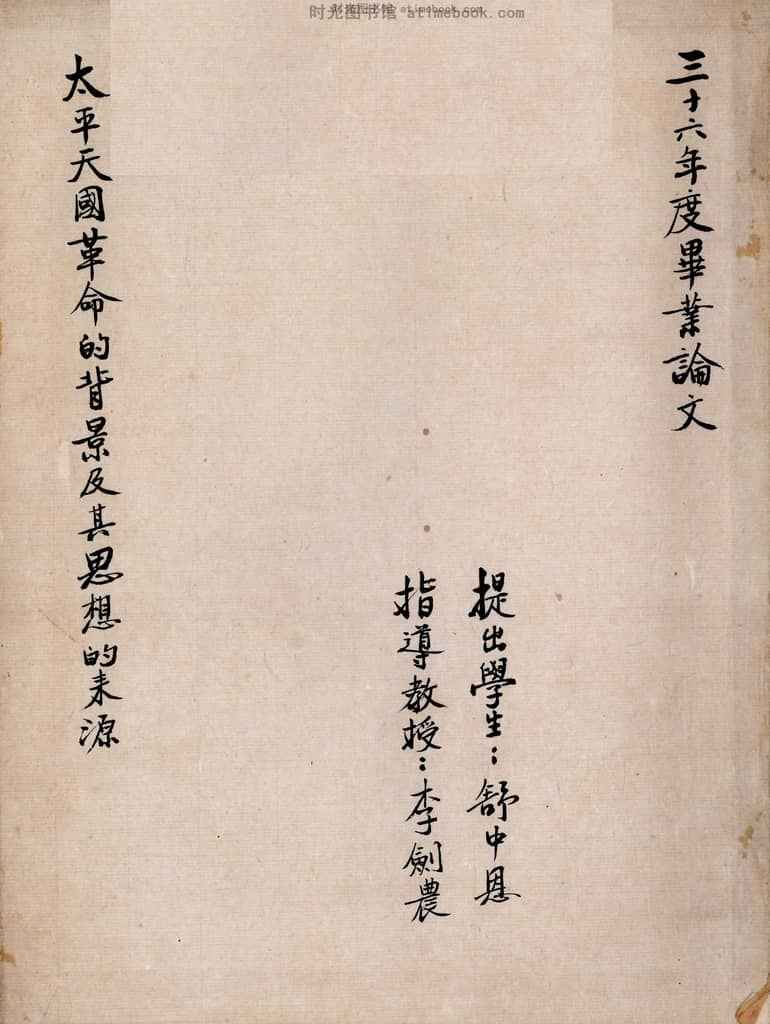 时光图书馆 atimebook.com
三十六年度畢業論文
提出學生：舒中恩
指導教授：李劍農
太平天國革命的背景及其思想的来源